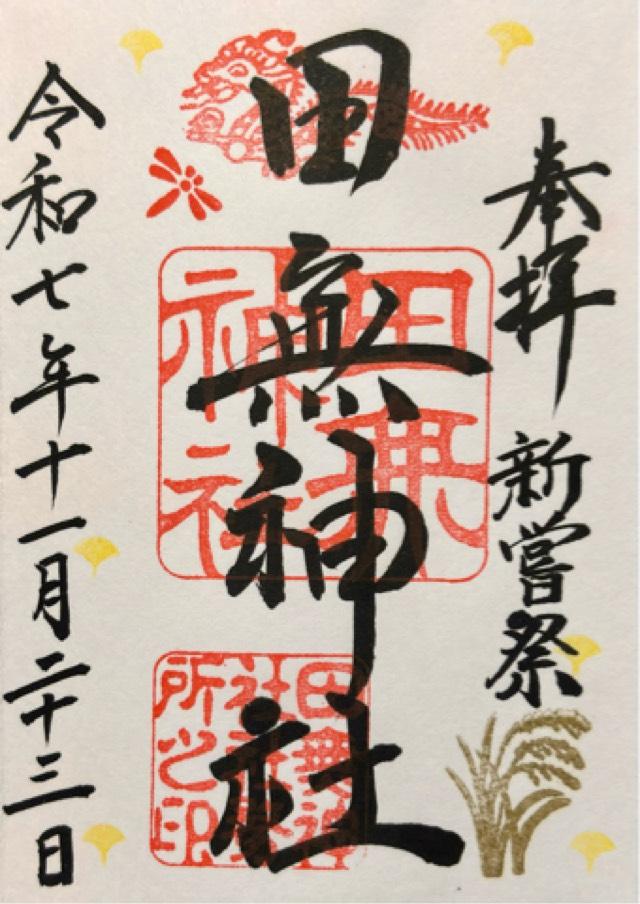 奉拝 新嘗祭
田無神社
田無神社
田無神社
所之印
令和七年十一月二十三日